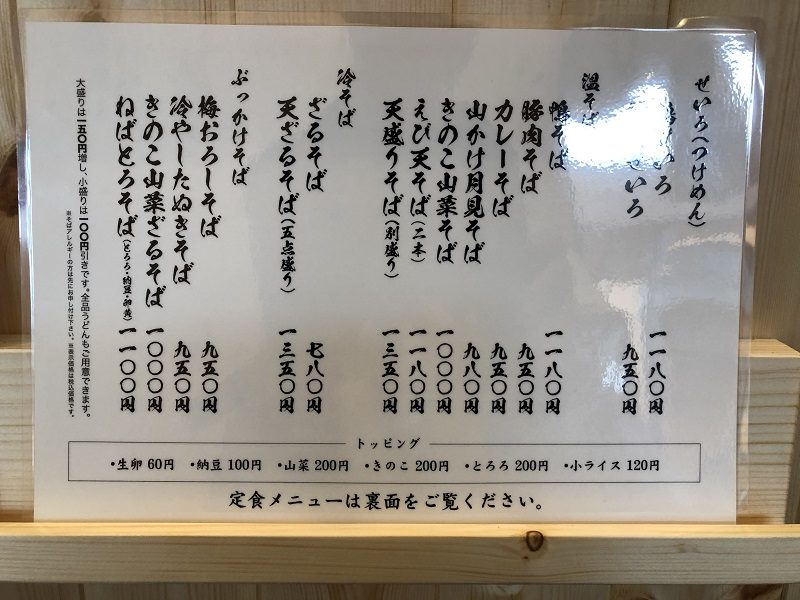 せいろ（つけめん）
せいろ 一一八〇円
せいろ 九五〇円
温そば
鴨そば 一一八〇円
豚肉そば 九五〇円
カレーそば 九五〇円
山かけ月見そば 九八〇円
きのこ山菜そば 一〇〇〇円
えび天そば（二本） 一一八〇円
天盛りそば（別盛り） 一三五〇円
冷そば
ざるそば 七八〇円
天ざるそば（五点盛り） 一三五〇円
ぶっかけそば
梅おろしそば 九五〇円
冷やしたぬきそば 九五〇円
きのこ山菜ざるそば 一〇〇〇円
ねばとろそば（とろろ・納豆・卵黄） 一一〇〇円
大盛りは一五〇円増し、小盛りは一〇〇円引きです。全品うどんもご用意できます。
※そばアレルギーの方は先にお申し付け下さい。※表示価格は税込価格です。
トッピング
・生卵 60円 ・納豆 100円 ・山菜 200円 ・きのこ 200円 ・とろろ 200円 ・小ライス 120円
定食メニューは裏面をご覧ください。